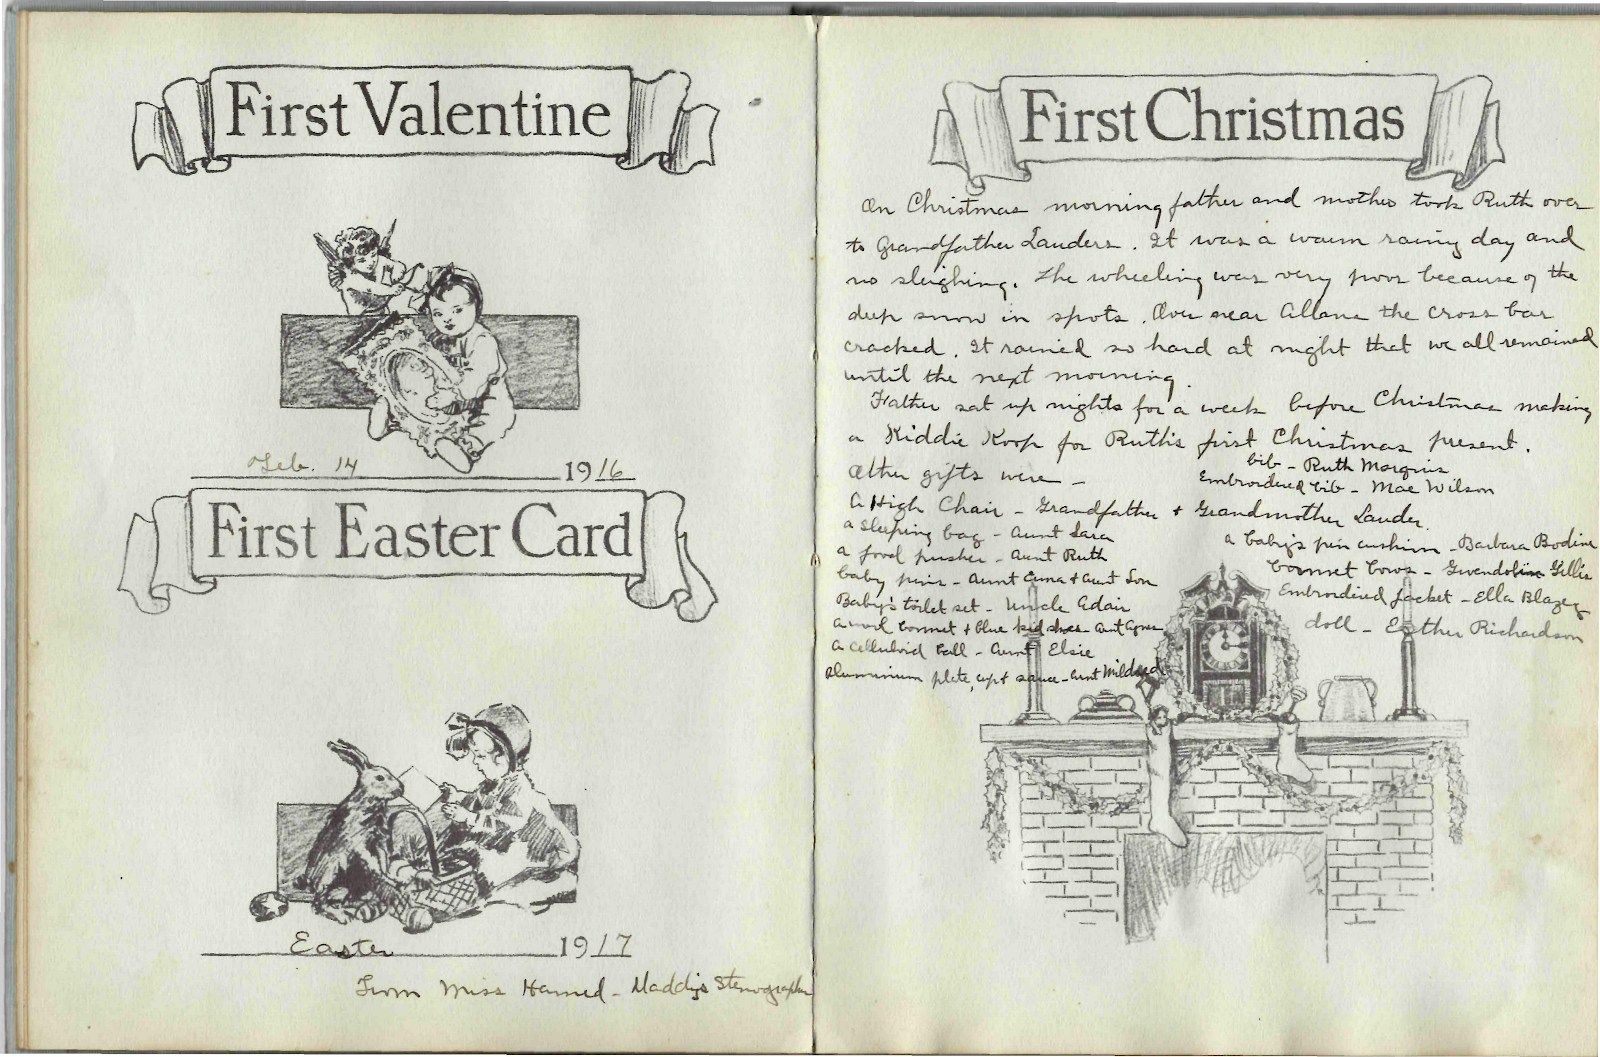 First Valentine
Feb. 14 1916
First Easter Card
Easter 1917
From Miss Hamed - Daddy's Stenographer
First Christmas
On Christmas morning father and mother took Ruth over
to Grandfather Lauders. It was a warm rainy day and
no sleighing. The wheeling was very poor because of the
deep snow in spots. Over near Allans the cross bar
cracked. It rained so hard at night that we all remained
until the next morning.
Father sat up nights for a week before Christmas making
a Kiddie Koop for Ruth's first Christmas present.
Other gifts were -
bib - Ruth Marquis
Embroidered bib - Mae Wilson
A High Chair - Grandfather + Grandmother Lauder.
a sleeping bag - Aunt Sara
a food pusher - Aunt Ruth
baby pins - Aunt + Aunt
Baby's toilet set - Uncle Adair
a wool bonnet + blue kid shoes - Aunt Agnes
a celluloid ball - Aunt Elsie
Aluminium plate, cup + sauce - Aunt Mildred
a baby's pin cushion - Barbara Bodine
bonnet bows - Gwendoline Gillis
Embroidered jacket - Ella Blazey
doll - Esther Richardson